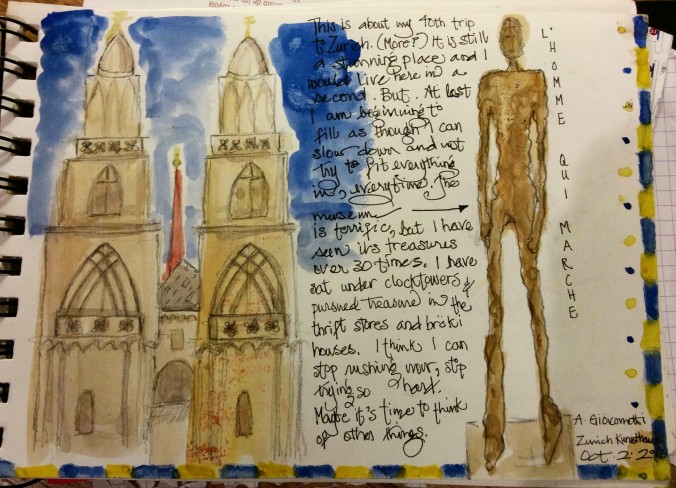 This is about my 10th trip
to Zurich. (More?) It is still
a stunning place and I
would live here in a
second. But. At last
I am beginning to
fill as though I can
slow down and not
try to fit everything
in, everytime. The
museum
is terrific, but I have
seen its treasures
over 30 times. I have
sat under clocktowers &
pursued treasure in the
thrift stores and bröki
houses. I think I can
stop rushing now, stop
trying so hard.
Maybe it's time to think
of other things.
L'HOMME QUI MARCHE
A. Giacometti
Zurich Kunsthaus
Oct. 2.